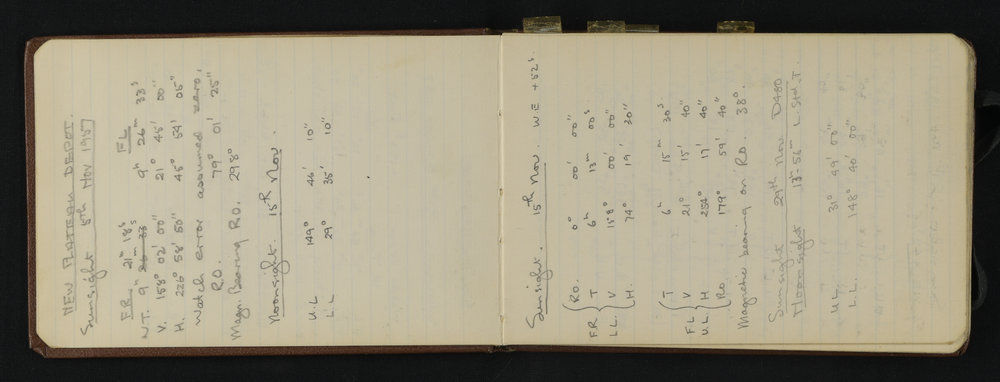 NEW PLATEAU DEPOT.
Sunsight 5th Nov 1957
F.R. F L
21m 18s
W.T. 9h 26m 33 9h 26m 33s
V. 158° 02' 00" 21° 45' 00"
H. 226° 58' 50" 45° 54' 05"
Watch error assumed zero.
R.O. 79° 01' 25"
Magn. Bearing R.O. 298°
Noonsight. 15th Nov.
U.L 149° 46' 10"
L.L 29° 35' 10"
Sunsight. 15th Nov. W.E +52s.
R.O. 0° 00' 00"
F.R T 6h 13m 00s
L.L. V 158° 00' 00"
H. 74° 19' 30"
T 6h 15m 30s.
F L V 21° 15' 40"
U.L. H 254° 17' 40"
R.O. 179° 59' 40"
Magnetic bearing on R.O. 38°.
Sunsight 29th Nov D480
Noonsight 13h 56m L. Std. T.
U.L. 31° 49' 00"
L.L. 148° 40' 00"